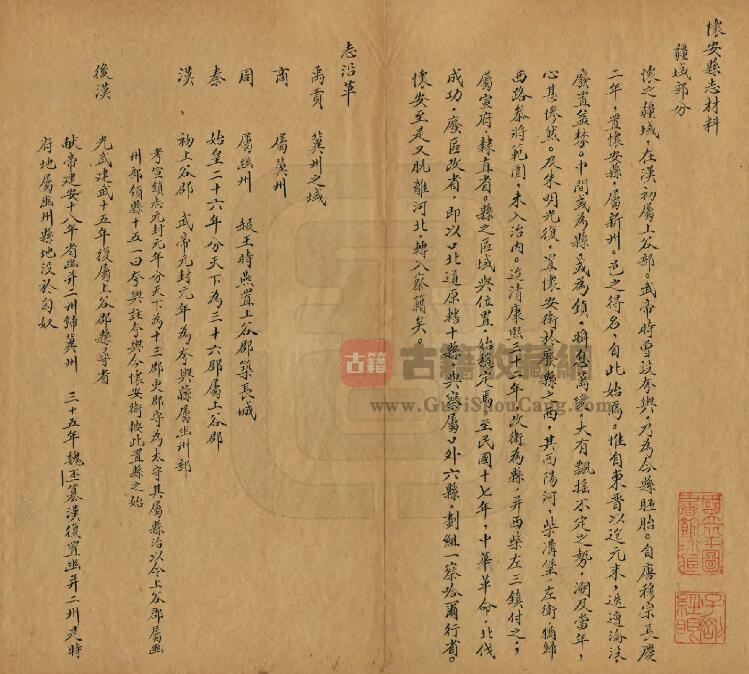 懷安縣志材料
疆域部分
懷之疆域，在漢初屬上谷郡。武帝時曾設夸輿，乃為今縣胚胎。自唐穆宗長慶
二年，置懷安縣，屬新州。邑之得名，自此始焉。惟自東晋以迄元末，迭遭淪陷
廢置益棼。中間或為縣，或為鎮，瞬息萬變，大有飄搖不定之勢，溯及當年，
心甚慘然。及朱明光復，置懷安衛於廢縣之西，其西陽河，柴溝堡，左衛猶歸
西路參將範圍，未入治內。迄清康熙三十二年，改衛為縣，并西柴左三鎮付之，
屬宣府，隸直省。縣之區域與位置，始穩定焉。至民國十七年，中華革命，北伐
成功，廢區改省，即以口北道原轄十縣，與察屬口外六縣，劃組一察哈爾行省。
懷安至是又脫離河北，轉入察籍矣。
志沿革
禹貢 冀州之域
商 屬冀州
周 屬幽州 赧王時燕置上谷郡築長城
秦 始皇二十六年分天下為三十六郡屬上谷郡
漢 初上谷郡 武帝元封元年為夸輿縣屬幽州部
考宣鎮志元封元年分天下為十三郡更郡守為太守其屬縣治以今上谷郡屬幽
州部領縣十五一曰夸輿註夸輿今懷安衛按此置縣之始
後漢 光武建武十五年復屬上谷郡縣尋省
獻帝建安十八年省幽并二州歸冀州 三十五年魏丕篡漢復置幽并二州是時
府地屬幽州縣地沒於匈奴
古籍
古籍收藏網
www.GujiShouCang.com